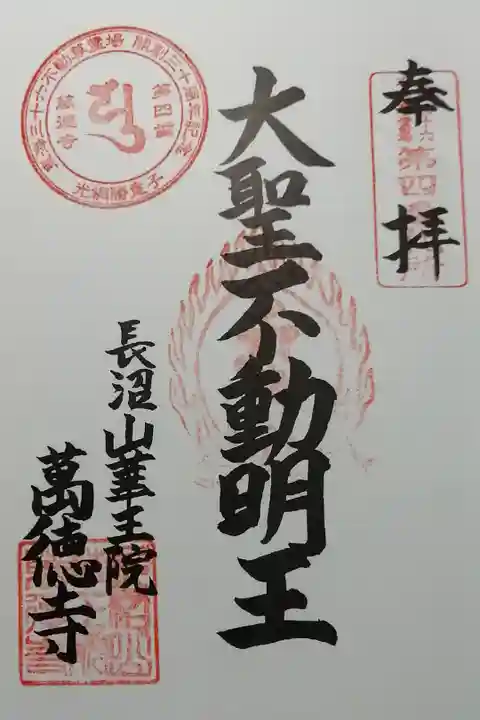 奉拝
第四番
大聖不動明王
長沼山華王院
萬徳寺
三十六不動尊霊場 開創三十周年記念
第四番
萬徳寺
光網勝童子